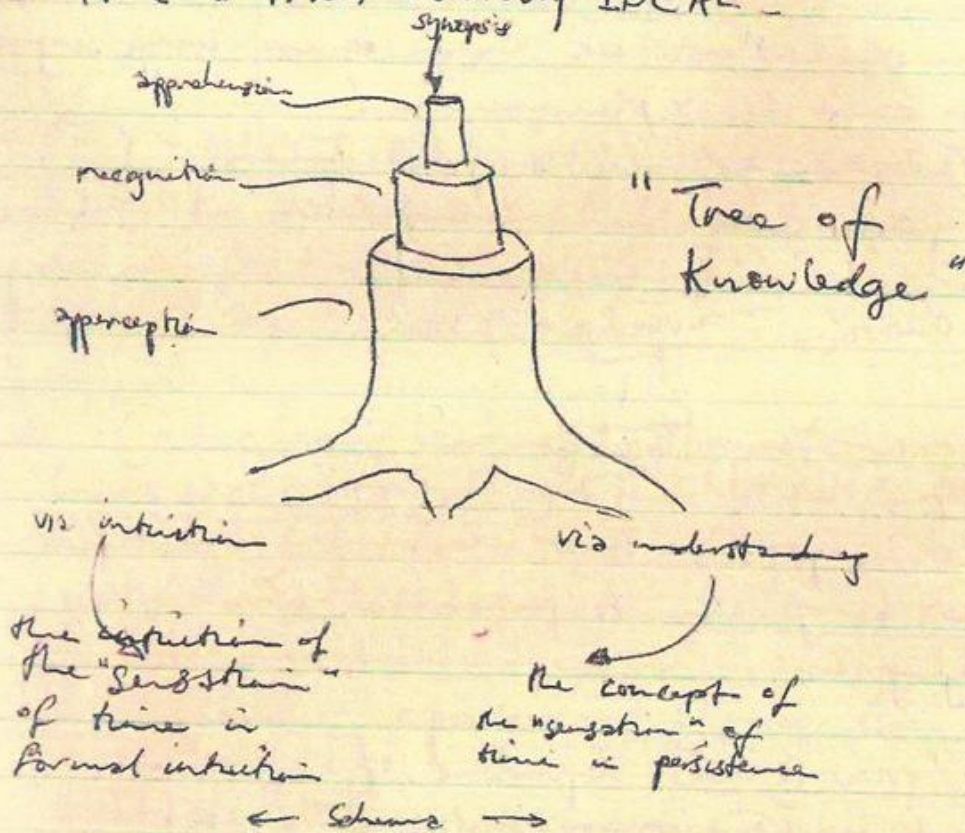 IDEAL -
synopsis
apprehension
recognition
"Tree of
Knowledge"
apperception
via intuition
via understanding
the intuition of
the "sensation"
of time in
formal intuition
the concept of
the "sensation" of
time in persistence
← Schema →